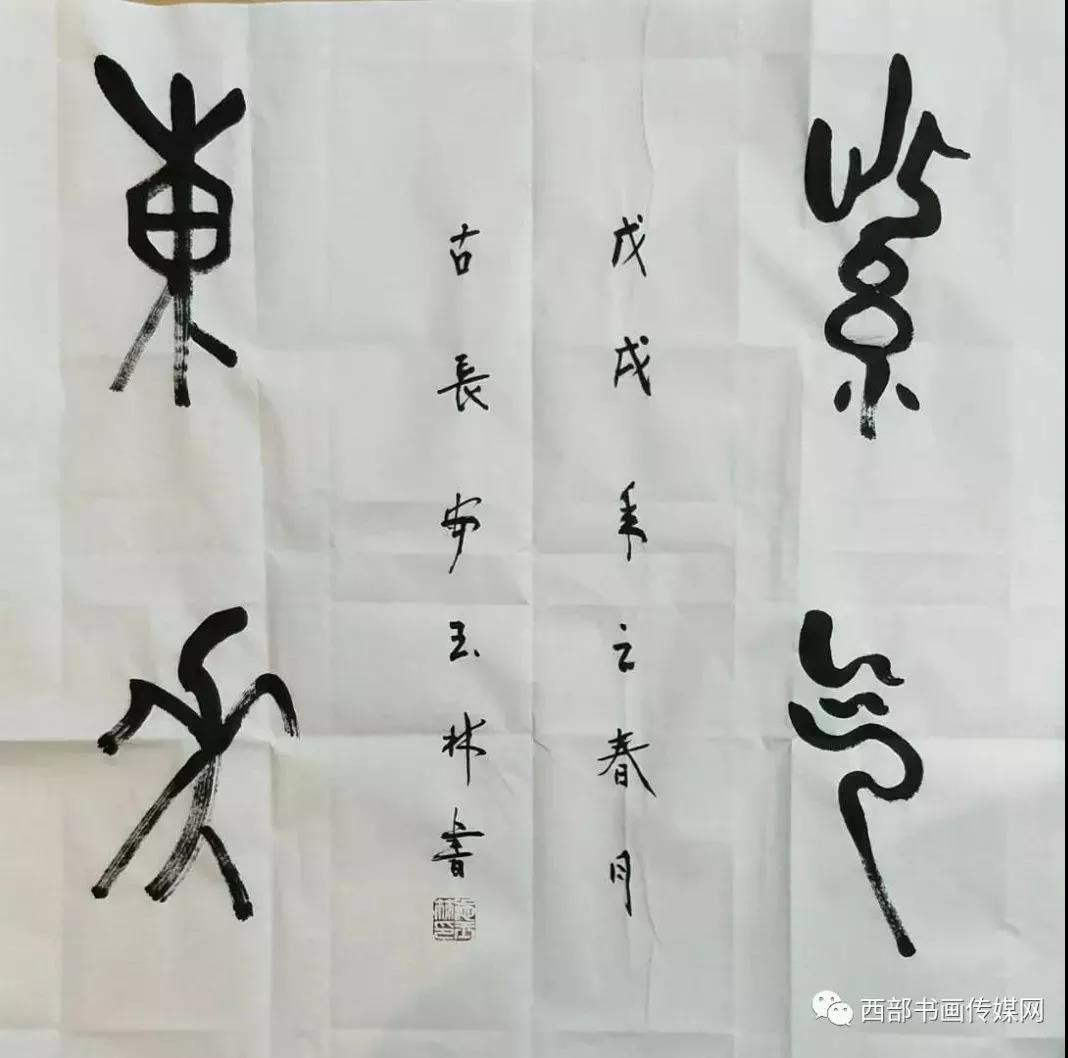 紫气
東來
戊戌年之春月
古長安玉林書
西部书画传媒网